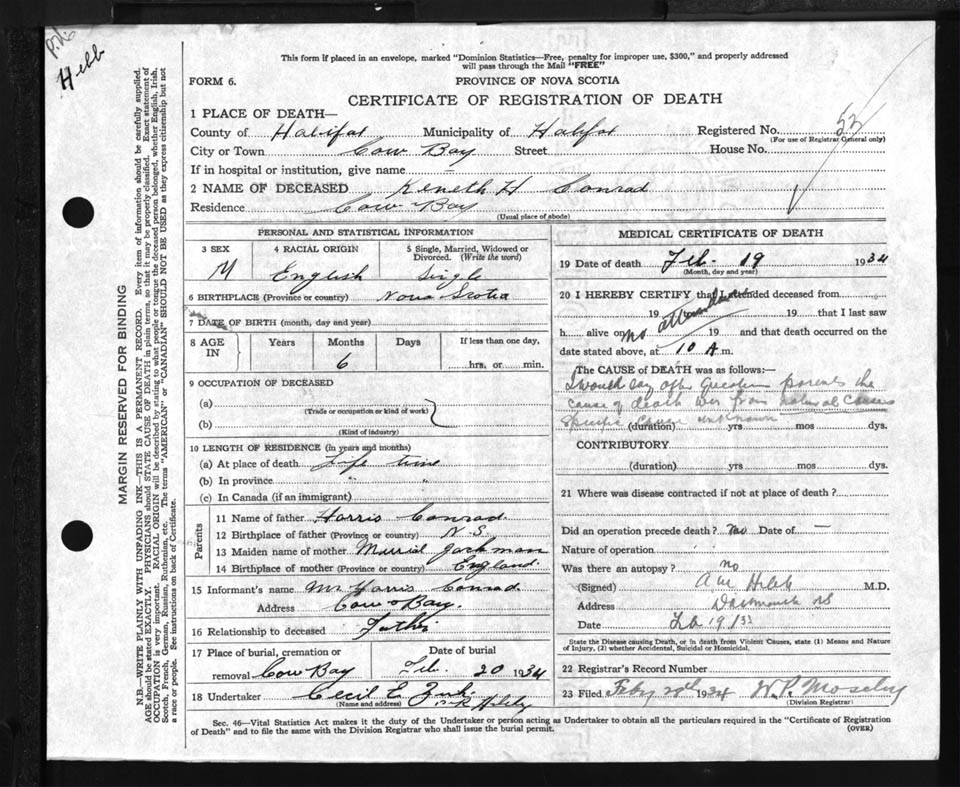 Hebb
This form if placed in an envelope, marked "Dominion Statistics—Free, penalty for improper use, $300," and properly addressed
will pass through the Mail "FREE"
FORM 6. PROVINCE OF NOVA SCOTIA
CERTIFICATE OF REGISTRATION OF DEATH
1 PLACE OF DEATH—
County of Halifax Municipality of Halifax Registered No. 53
(For use of Registrar General only)
City or Town Cow Bay Street House No.
If in hospital or institution, give name —
2 NAME OF DECEASED Keneth H Conrad
Residence Cow Bay
(Usual place of abode)
PERSONAL AND STATISTICAL INFORMATION
3 SEX 4 RACIAL ORIGIN 5 Single, Married, Widowed or
Divorced. (Write the word)
M English Single
6 BIRTHPLACE (Province or country) Nova Scotia
7 DATE OF BIRTH (month, day and year)
8 AGE IN Years Months Days If less than one day,
6 hrs. or min.
9 OCCUPATION OF DECEASED
(a)
(Trade or occupation or kind of work)
(b)
(Kind of industry)
10 LENGTH OF RESIDENCE (in years and months)
(a) At place of death Life time
(b) In province " "
(c) In Canada (if an immigrant)
Parents
11 Name of father Harris Conrad
12 Birthplace of father (Province or country) N.S.
13 Maiden name of mother Jackman
14 Birthplace of mother (Province or country) England
15 Informant's name Mr Harris Conrad
Address Cow Bay.
16 Relationship to deceased Father
17 Place of burial, cremation or Date of burial
removal Cow Bay Feb. 20 1934
18 Undertaker Cecil E.
(Name and address)
MEDICAL CERTIFICATE OF DEATH
19 Date of death Feb. 19 1934
(Month, day and year)
20 I HEREBY CERTIFY that I attended deceased from
19 19 that I last saw
h alive on no attendance 19 and that death occurred on
date stated above, at 10 A m.
The CAUSE of DEATH was as follows:—
I would say after parents the
cause of death was from natural causes
Specific cause unknown
(duration) yrs mos dys.
CONTRIBUTORY
(duration) yrs mos dys.
21 Where was disease contracted if not at place of death?
Did an operation precede death? no Date of —
Nature of operation
Was there an autopsy? no
(Signed) M.D.
Address Dartmouth NS
Date Feb 19
State the Disease causing Death, or in death from Violent Causes, state (1) Means and Nature
of Injury, (2) whether Accidental, Suicidal or Homicidal.
22 Registrar's Record Number
23 Filed Feby 20th 1934 W.P. Moseley
(Division Registrar)
Sec. 46—Vital Statistics Act makes it the duty of the Undertaker or person acting as Undertaker to obtain all the particulars required in the "Certificate of Registration
of Death" and to file the same with the Division Registrar who shall issue the burial permit. (OVER)
MARGIN RESERVED FOR BINDING
N.B.—WRITE PLAINLY WITH UNFADING INK—THIS IS A PERMANENT RECORD. Every item of information should be carefully supplied.
AGE should be stated EXACTLY. PHYSICIANS should STATE CAUSE OF DEATH in plain terms, so that it may be properly classified. Exact statement of
OCCUPATION is very important. RACIAL ORIGIN will be described by stating to what people or tongue the deceased person belonged, whether English, Irish,
Scotch, French, German, Russian, Ruthenian, etc. The terms "AMERICAN" or "CANADIAN" SHOULD NOT BE USED as they express citizenship but not
a race or people. See instructions on back of Certificate.